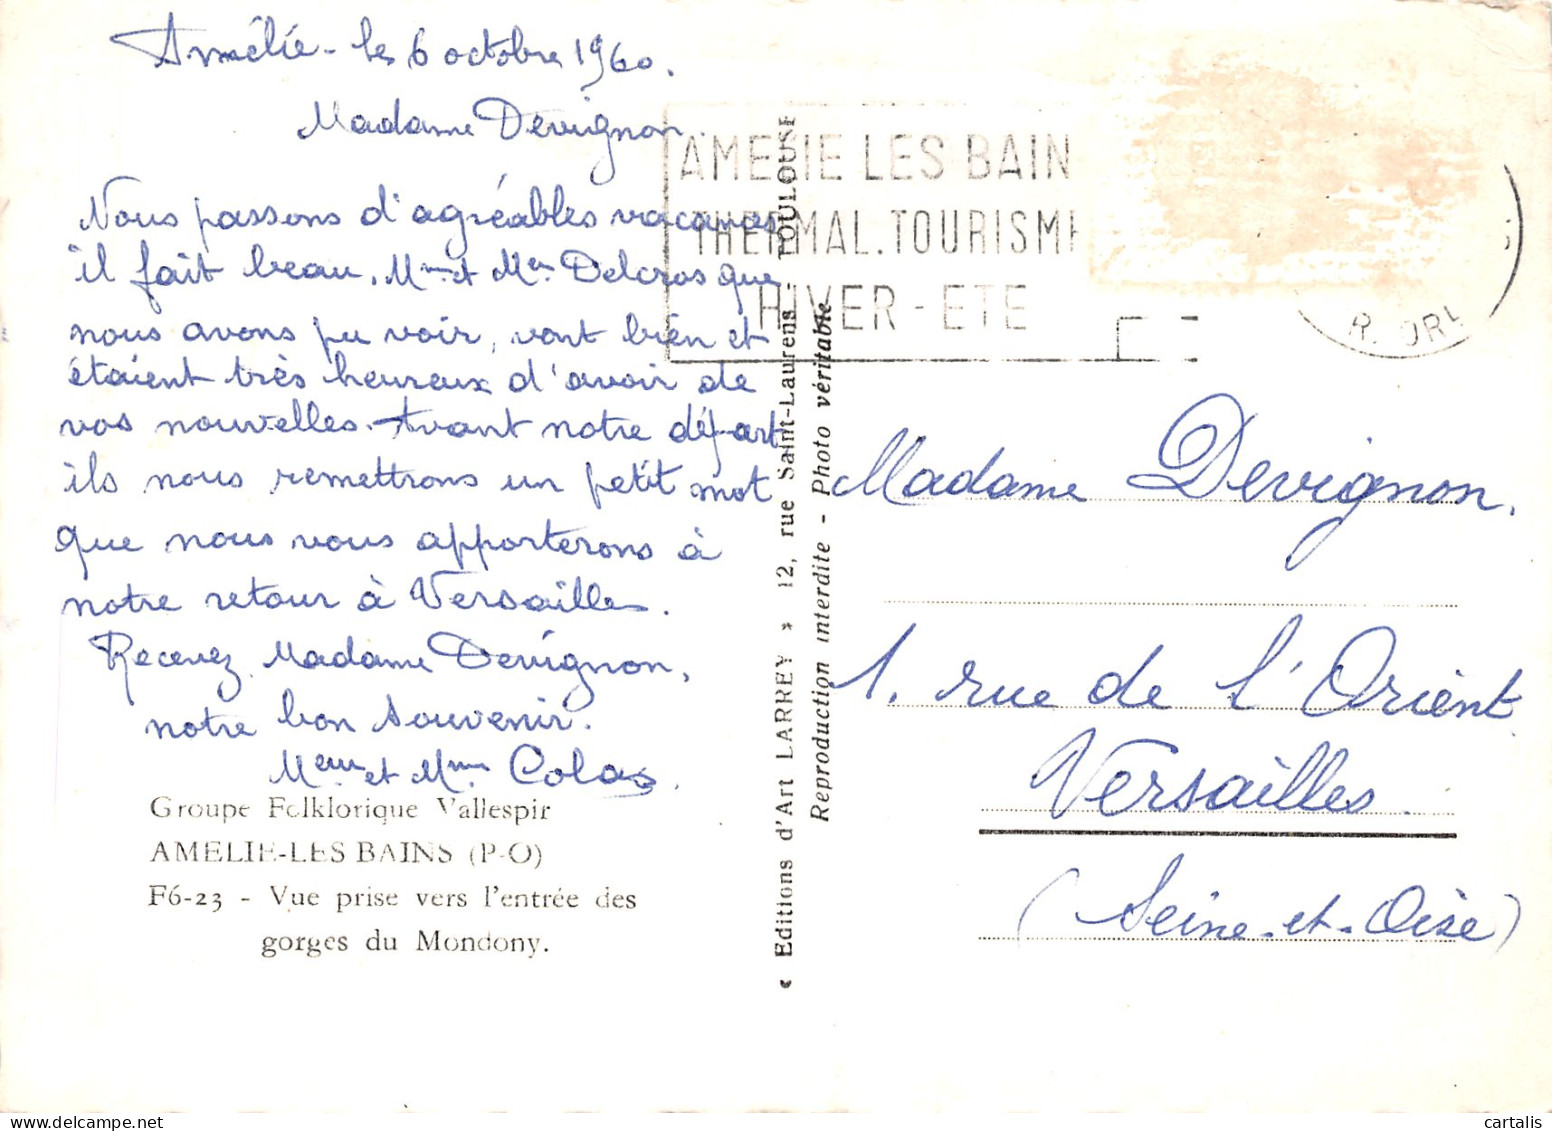 Amélie - le 6 octobre 1960.
Madame Devignon.
Nous passons d'agréables vacances
il fait beau. Mme et Mr Delcros que
nous avons pu voir, vont bien et
étaient très heureux d'avoir de
vos nouvelles. Avant notre départ
ils nous remettrons un petit mot
que nous vous apporterons à
notre retour à Versailles.
Recevez Madame Devignon,
notre bon souvenir.
Meur et Mme Colas.
Groupe Folklorique Vallespir
AMELIE-LES BAINS (P-O)
F6-23 - Vue prise vers l'entrée des
gorges du Mondony.
« Editions d'Art LARREY » 12, rue Saint-Laurens - TOULOUSE
Reproduction interdite - Photo véritable
AMELIE LES BAIN
THERMAL. TOURISM
HIVER - ETE
R. ORL
Madame Devignon.
1. rue de l'Orient
Versailles.
(Seine-et-Oise)
cartalis